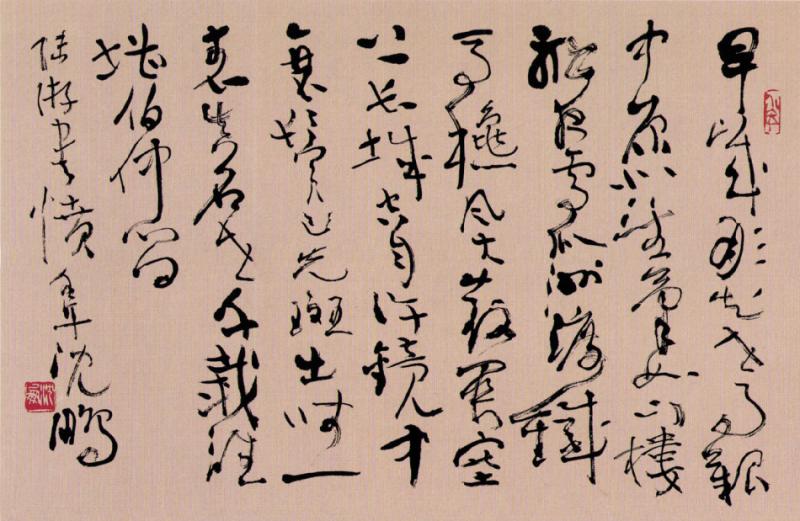 早歲那知世事艱
中原北望氣如山樓
船夜雪瓜洲渡鐵
馬穐風大散關塞
上長城空自許鏡中
衰鬢已先斑出師一
表真名世千載誰
堪伯仲間
陸游書憤 沈鵬